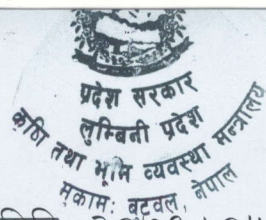 प्रदेश सरकार
लुम्बिनी प्रदेश
कृषि तथा भूमि व्यवस्था मन्त्रालय
मुकाम: बुटवल, नेपाल